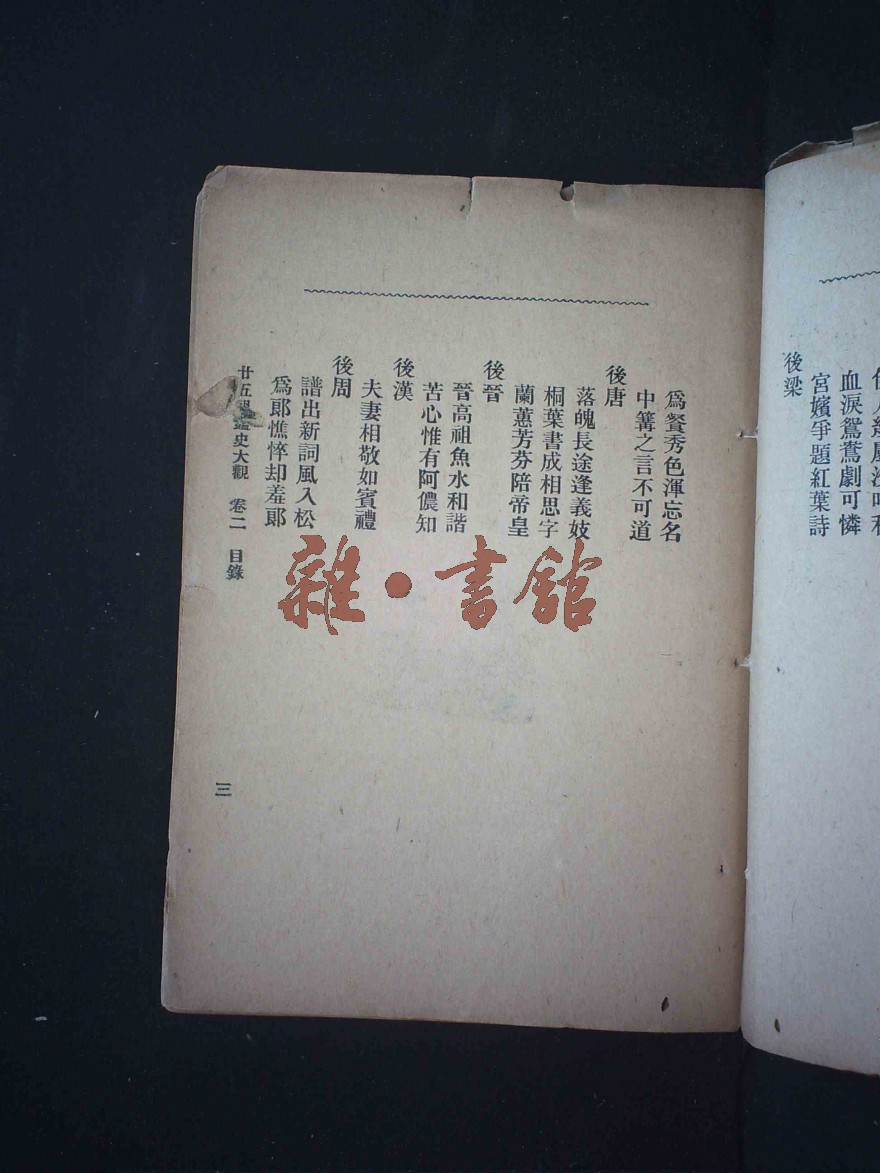 後梁
宮嬪爭題紅葉詩
血淚鴛鴦劇可憐
爲餐秀色渾忘名
中篝之言不可道
後唐
落魄長途逢義妓
桐葉書成相思字
蘭蕙芳芬陪帝皇
後晉
晉高祖魚水和諧
苦心惟有阿儂知
後漢
夫妻相敬如賓禮
後周
譜出新詞風入松
爲郎憔悴却羞郎
廿五史大觀 卷二 目錄
三
雜·書館